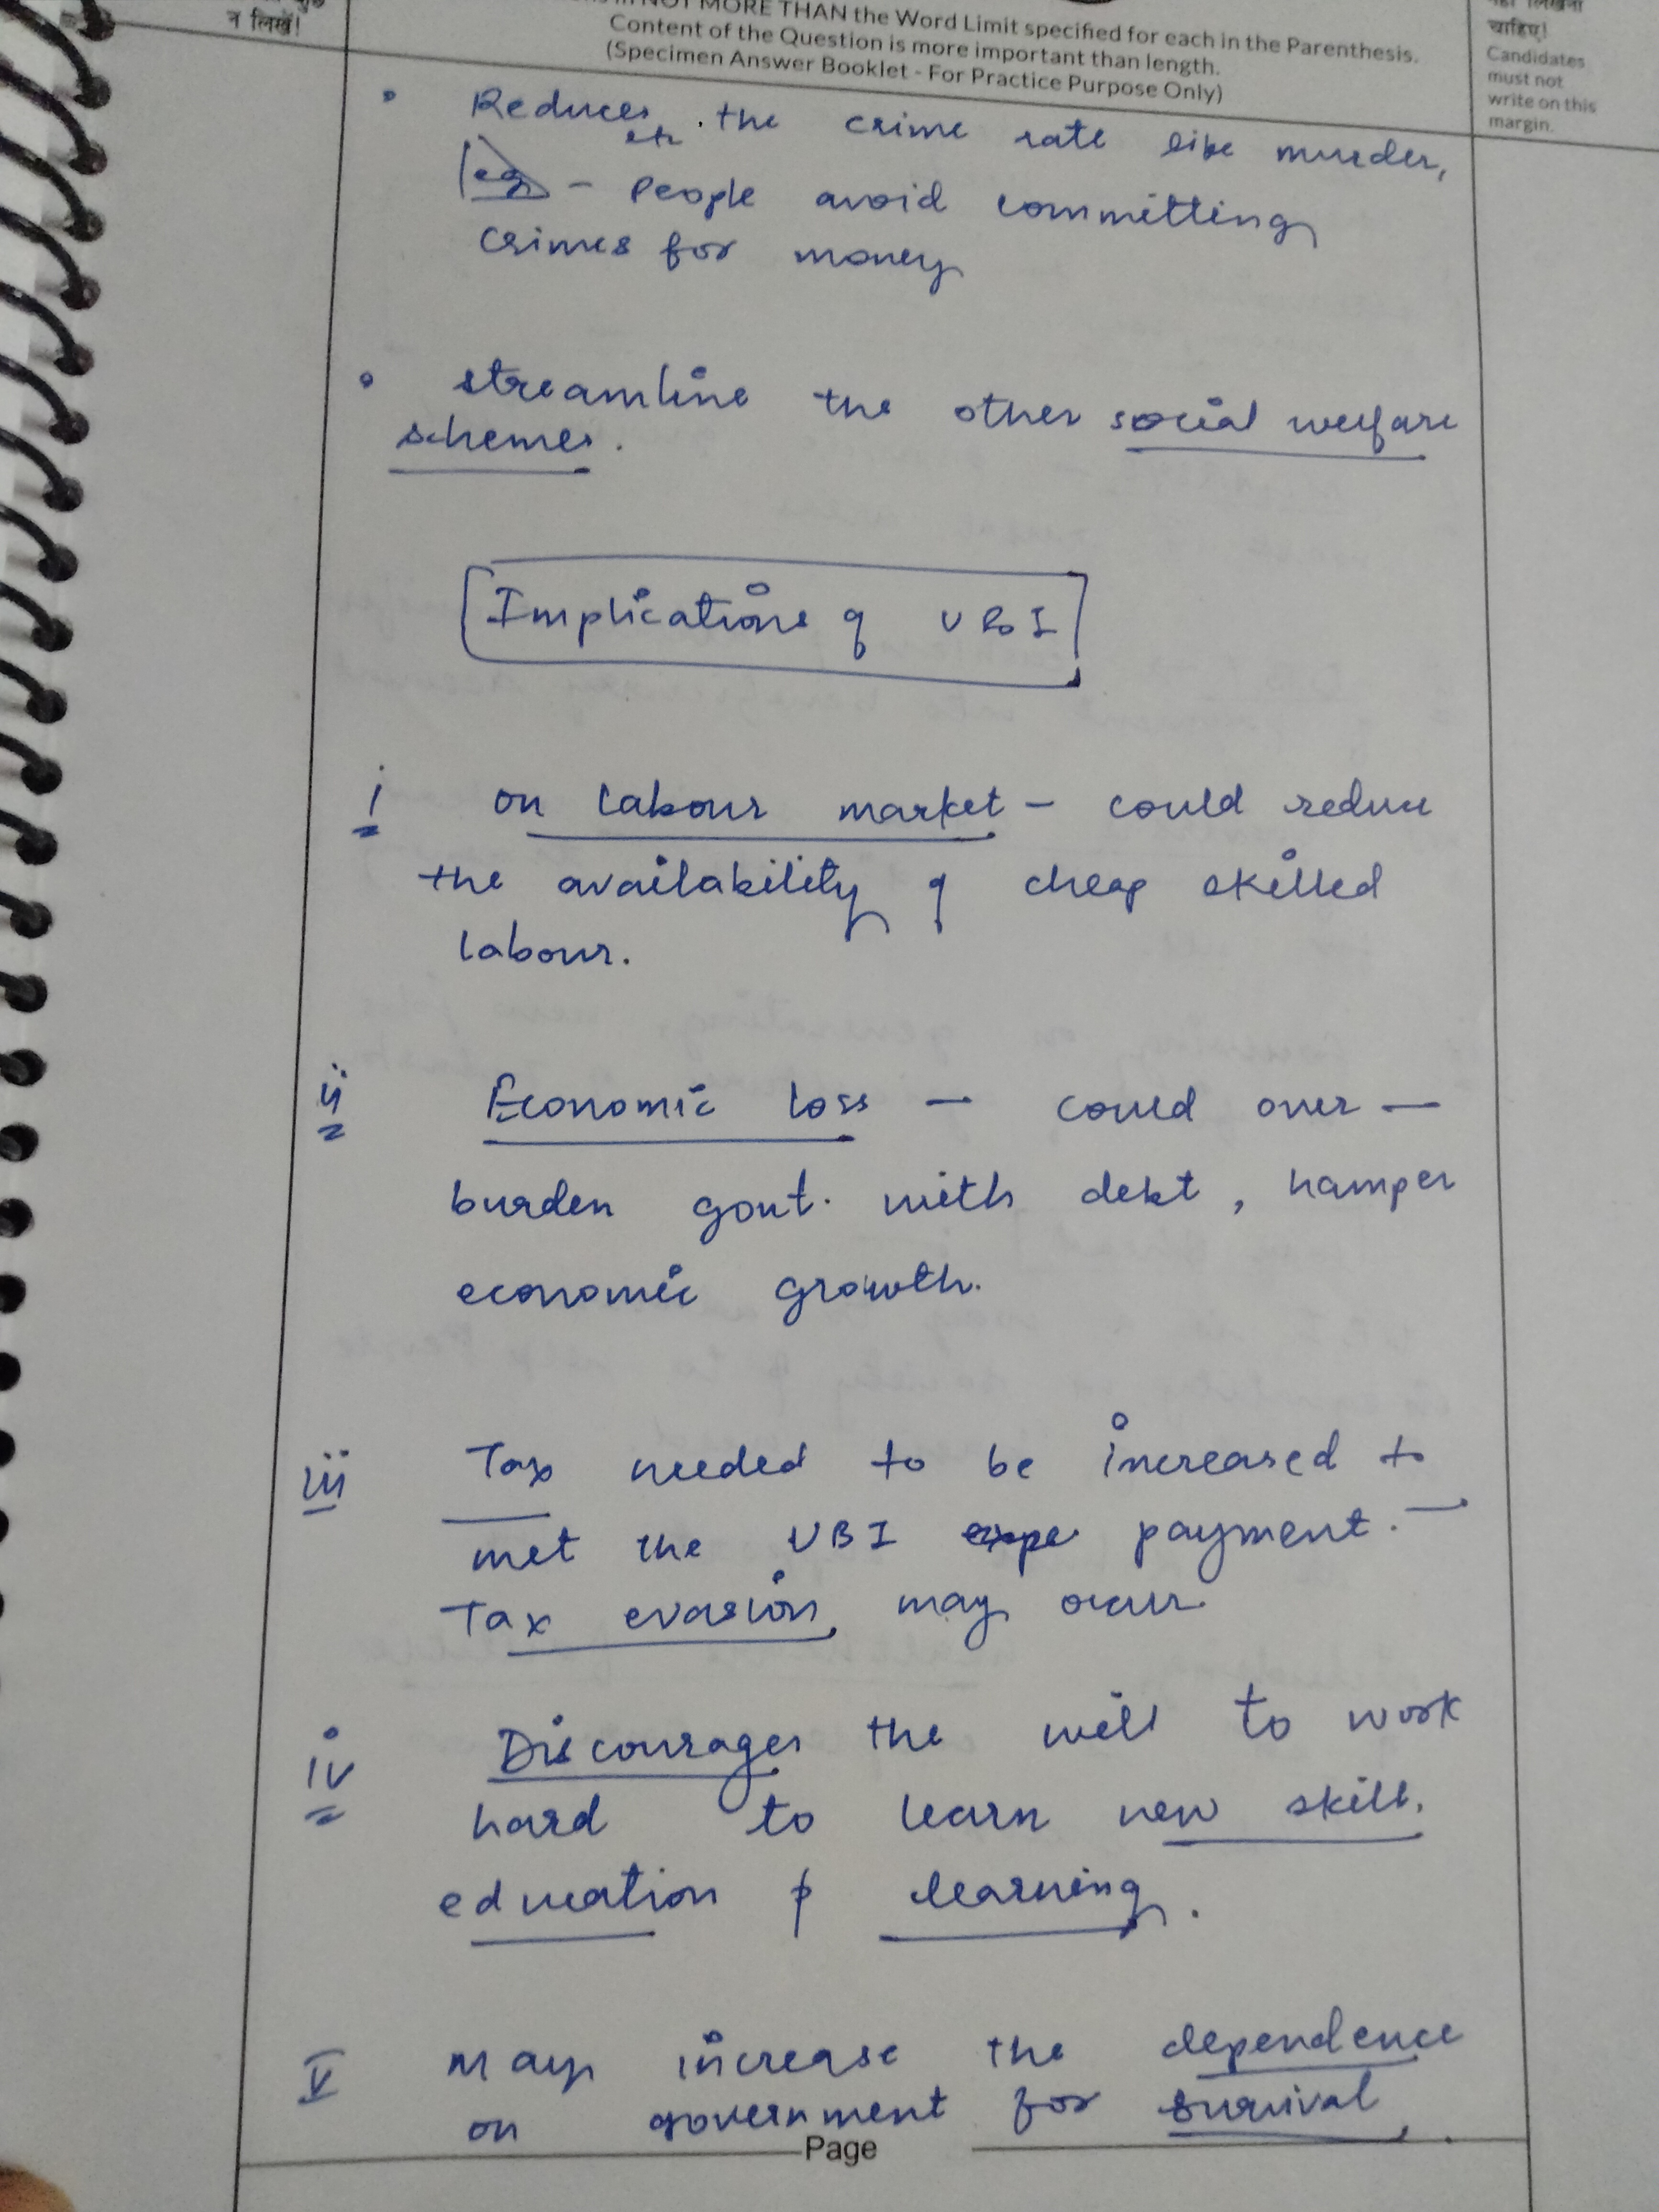 न लिखें!
NOT MORE THAN the Word Limit specified for each in the Parenthesis.
Content of the Question is more important than length.
(Specimen Answer Booklet - For Practice Purpose Only)
चाहिए!
Candidates
must not
write on this
margin.
• Reduces the crime rate like murder,
etc
eg - People avoid committing
crimes for money
• streamline the other social welfare
schemes.
Implications of UBI
i on labour market - could reduce
the availability of cheap skilled
labour.
ii Economic loss - could over-
burden govt. with debt, hamper
economic growth.
iii Tax needed to be increased to
met the UBI expe payment. -
Tax evasion may occur.
iv Discourages the will to work
hard to learn new skill,
education & learning.
V May increase the dependence
on government for survival.
Page